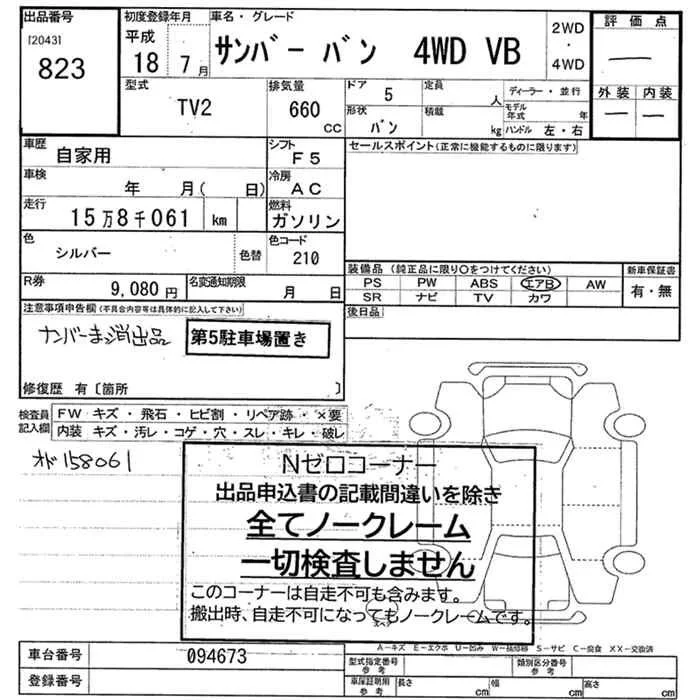 出品番号
[2043]
823
初度登録年月
平成
18 7月
車名・グレード
サンバー バン 4WD VB
2WD
・
4WD
評価点
―
外装 内装
― ―
型式
TV2
排気量
660
CC
ドア
5
定員
人
形状
バン
積載
kg
ディーラー・並行
モデル年式 年
ハンドル 左・右
車歴
自家用
シフト
F5
車検
年 月( 日)
冷房
AC
走行
15万8千061 km
燃料
ガソリン
色
シルバー
色替
色コード
210
R券
9,080 円
名変通知期限
月 日
セールスポイント(正常に機能するものに限ります)
装備品 (純正品に限り○をつけてください)
PS PW ABS エアB AW
SR ナビ TV カワ
新車保証書
有・無
後日品
注意事項申告欄(不具合内容等は具体的に記入して下さい)
ナンバーまっ消出品
第5駐車場置き
修復歴 有〔箇所 〕
検査員記入欄
FW キズ・飛石・ヒビ割・リペア跡・×要
内装 キズ・汚レ・コゲ・穴・スレ・キレ・破レ
オド158061
Nゼロコーナー
出品申込書の記載間違いを除き
全てノークレーム
一切検査しません
このコーナーは自走不可も含みます。
搬出時、自走不可になってもノークレームです。
スペア
A-キズ E-エクボ U-凹み W-補修跡 S-サビ C-腐食 XX-交換済
車台番号
094673
登録番号
型式指定番号
参考
類別区分番号
参考
車庫証明用
参考
長さ cm
幅 cm
高さ cm